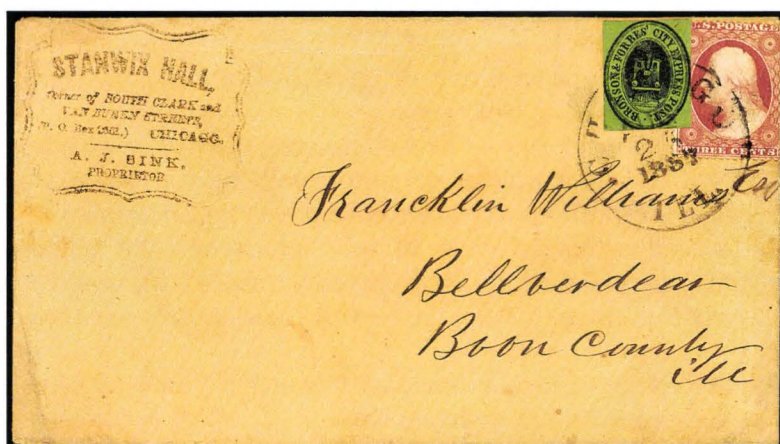 STANWIX HALL,
Corner of SOUTH CLARK and
VAN BUREN STREETS,
(P. O. Box ) CHICAGO.
A. J. SINK,
PROPRIETOR
BRONSON & FORBES' CITY EXPRESS POST
U.S. POSTAGE
THREE CENTS
CHICAGO
2
185
ILL
Francklin Williams Esq
Bellverdear
Boon County
Ill